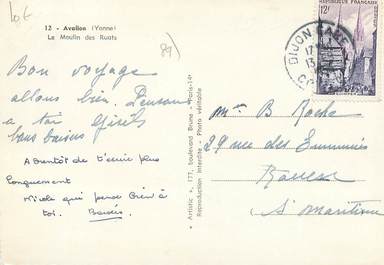 10€
12 - Avallon (Yonne)
Le Moulin des Ruats
89)
Bon voyage
allons bien. Pensons
a toi
bons baisers
A bientôt de t'écrire plus
longuement
qui pense bien à
toi. Baisers
Artistic », 177, boulevard Brune - Paris-14e
Reproduction interdite - Photo véritable
REPUBLIQUE FRANÇAISE
12f
DIJON GARE
17
13
Mme B Roche
29 rue des
Rouen
S. Maritime